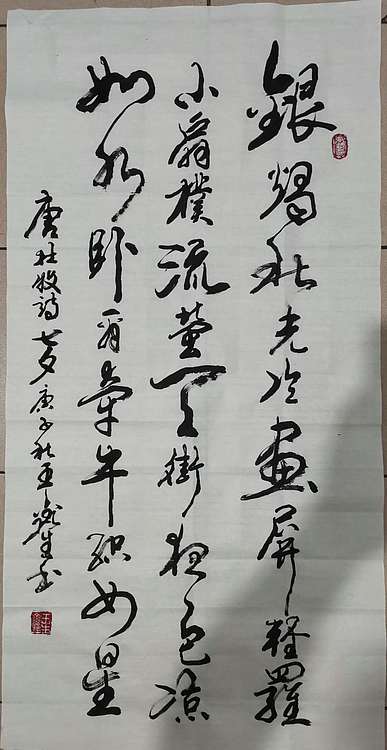 銀燭秋光冷畫屏輕羅
小扇撲流螢天街夜色凉
如水卧看牽牛織女星
唐杜牧詩七夕庚子秋王生书